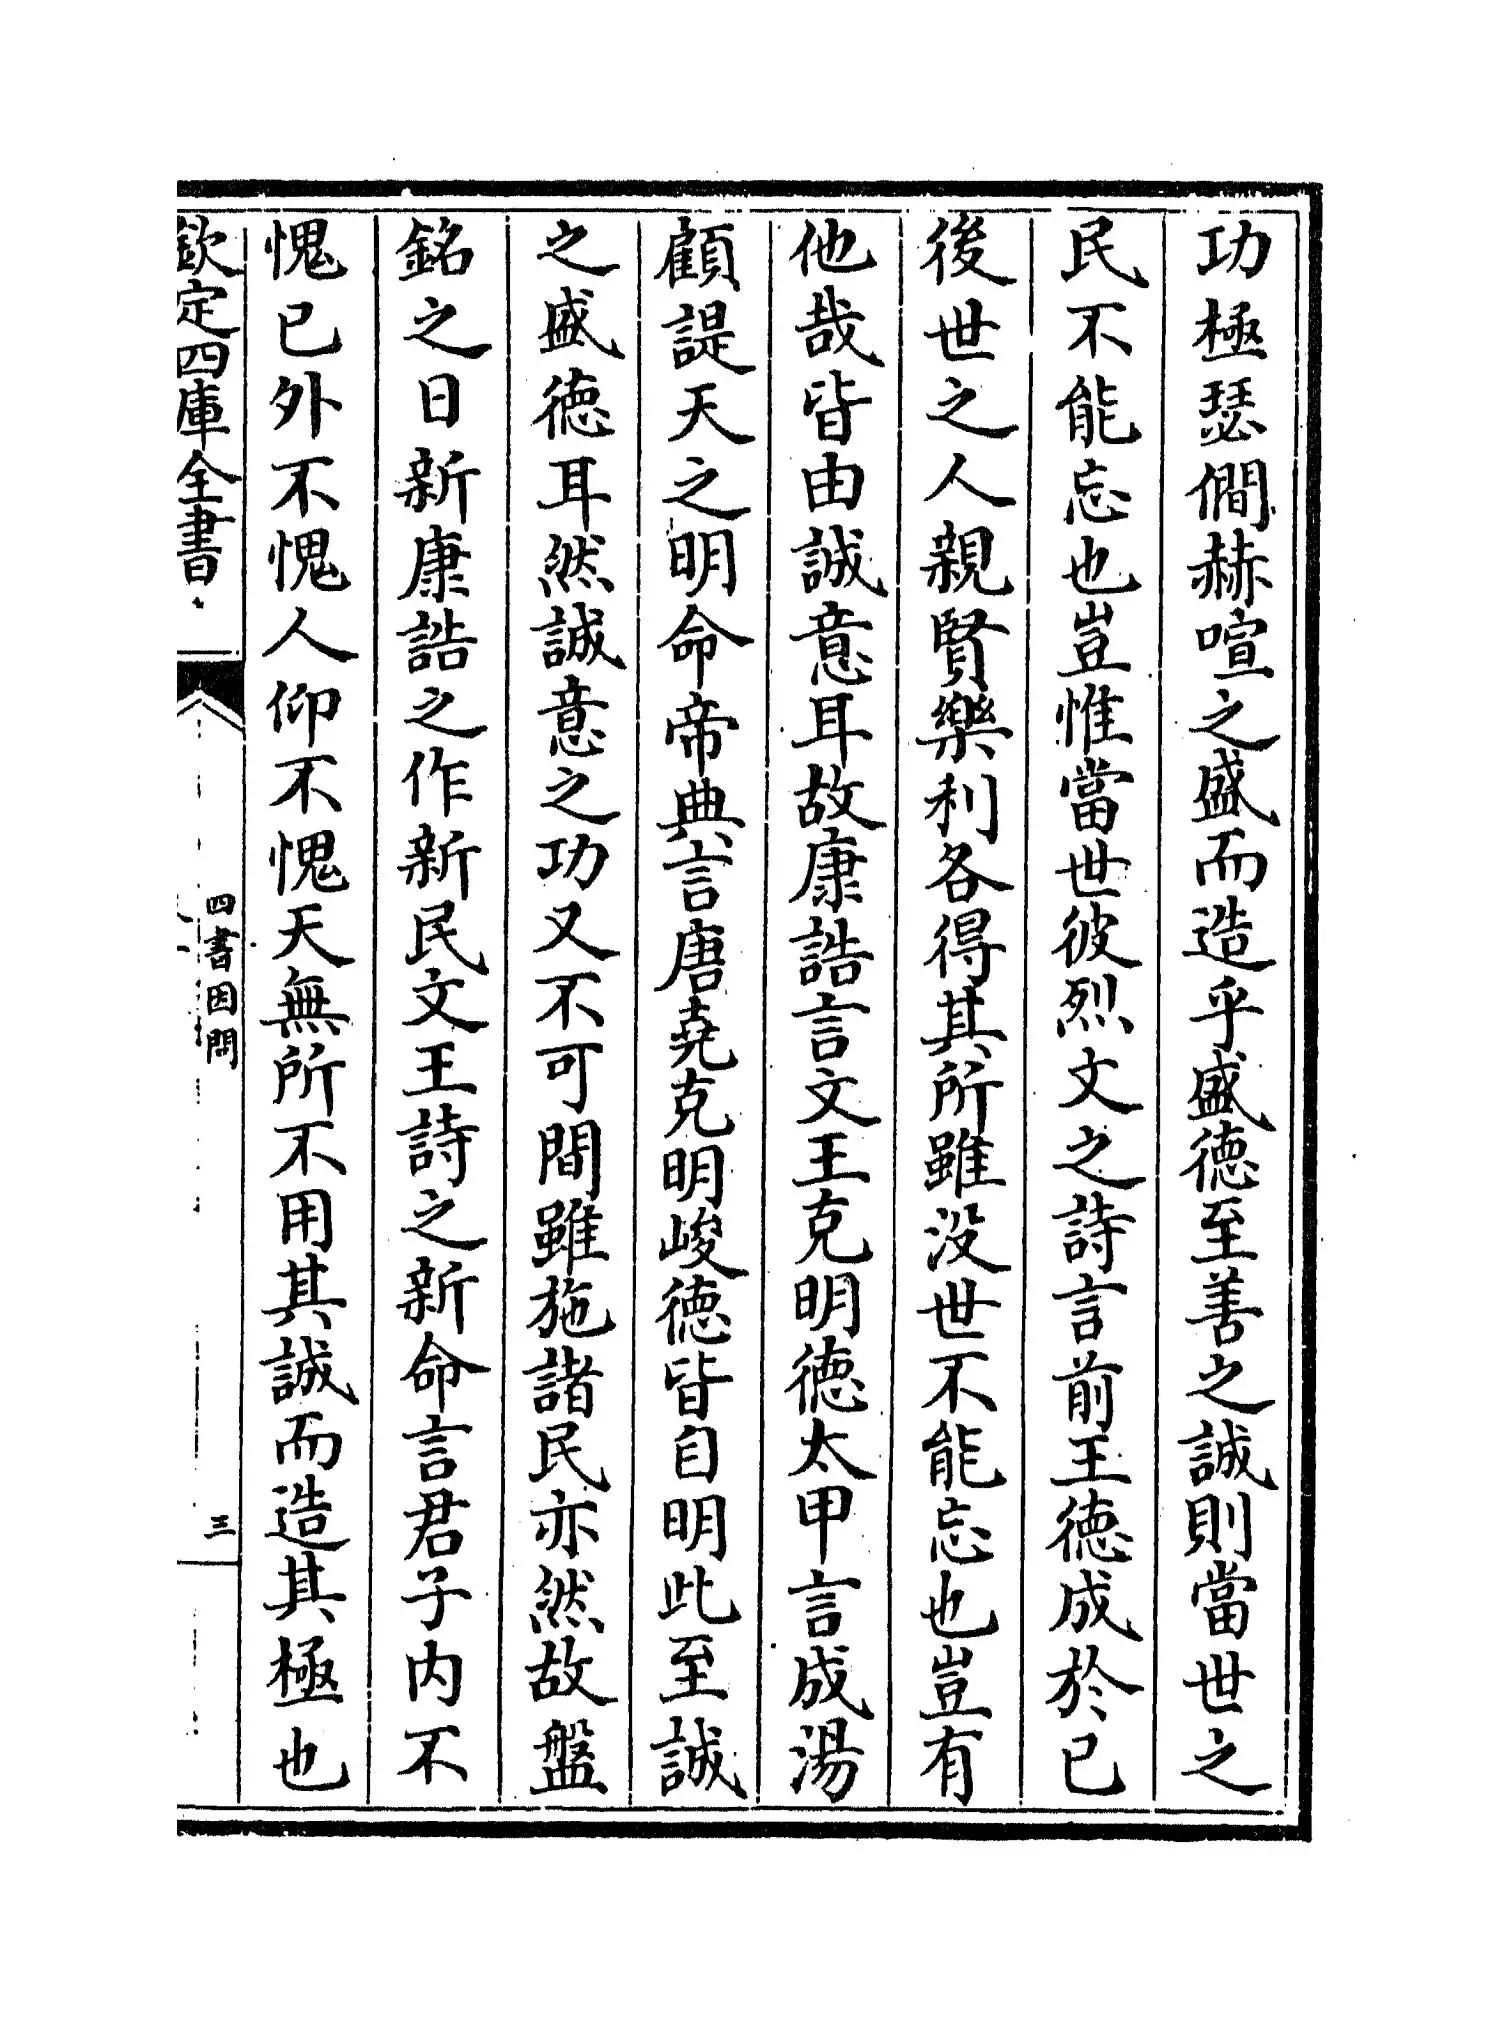 功極瑟僩赫喧之盛而造乎盛德至善之誠則當世之
民不能忘也豈惟當世彼烈文之詩言前王德成於已
後世之人親賢樂利各得其所雖没世不能忘也豈有
他哉皆由誠意耳故康誥言文王克明德太甲言成湯
顧諟天之明命帝典言唐堯克明峻德皆自明此至誠
之盛德耳然誠意之功又不可間雖施諸民亦然故盤
銘之日新康誥之作新民文王詩之新命言君子内不
愧已外不愧人仰不愧天無所不用其誠而造其極也
欽定四庫全書
四書因問
三